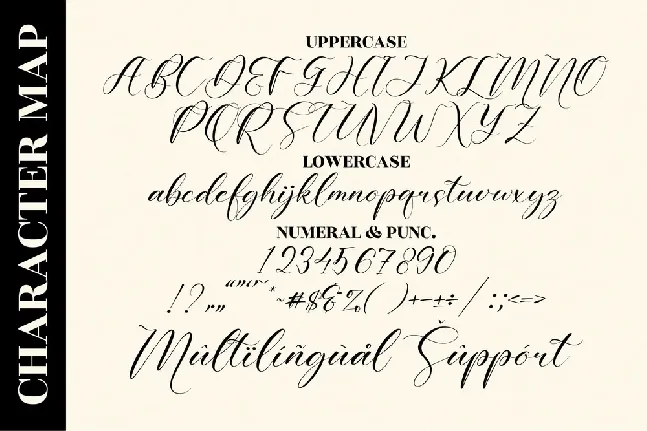 CHARACTER MAP
UPPERCASE
ABCDEFGHIJKLMNO
PQRSTUVWXYZ
LOWERCASE
abcdefghijklmnopqrstuvwxyz
NUMERAL & PUNC.
1234567890
#$&%( )+-±÷/ :;<=>
Mûltilíñgùål Šûppórt